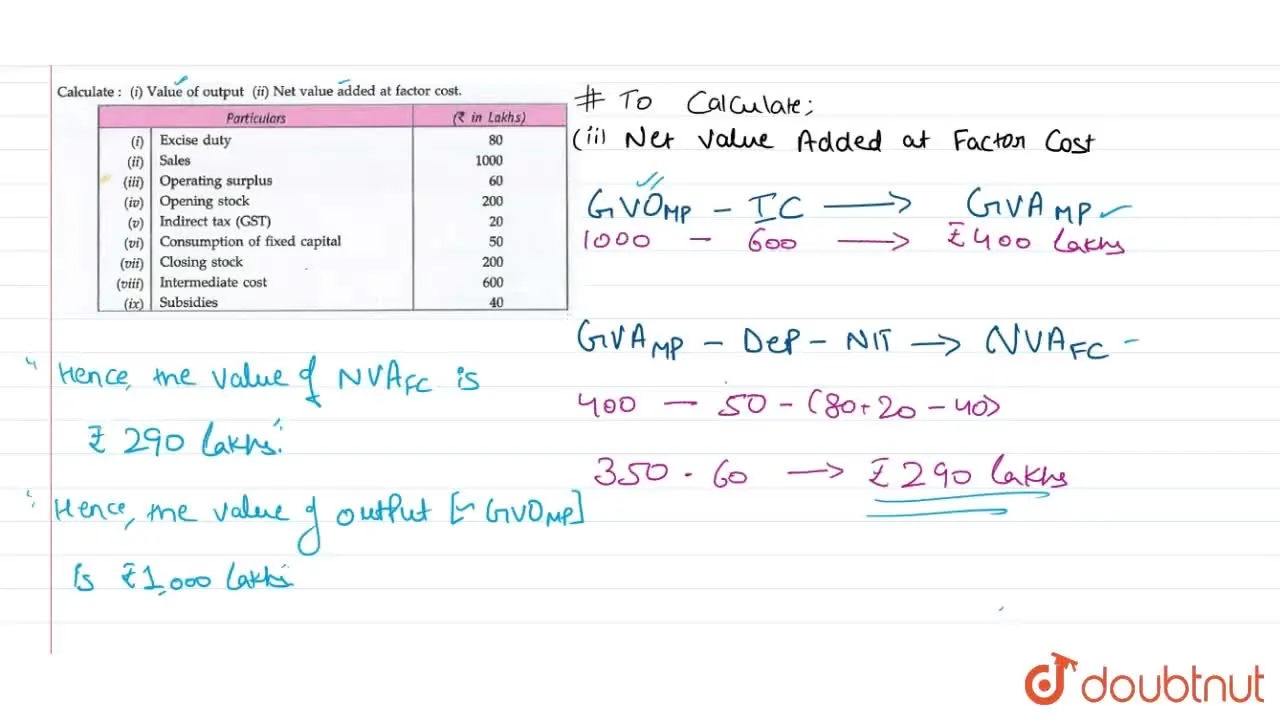 Calculate : (i) Value of output (ii) Net value added at factor cost.
Particulars (₹ in Lakhs)
(i) Excise duty 80
(ii) Sales 1000
(iii) Operating surplus 60
(iv) Opening stock 200
(v) Indirect tax (GST) 20
(vi) Consumption of fixed capital 50
(vii) Closing stock 200
(viii) Intermediate cost 600
(ix) Subsidies 40
# To Calculate;
(ii) Net Value Added at Factor Cost
GVO_MP - IC → GVA_MP
1000 - 600 → ₹400 Lakhs
GVA_MP - Dep - NIT → NVA_FC
400 - 50 - (80+20-40)
350 - 60 → ₹290 lakhs
Hence, the value of NVA_FC is
₹ 290 lakhs.
Hence, the value of output [GVO_MP]
is ₹1,000 lakhs
doubtnut